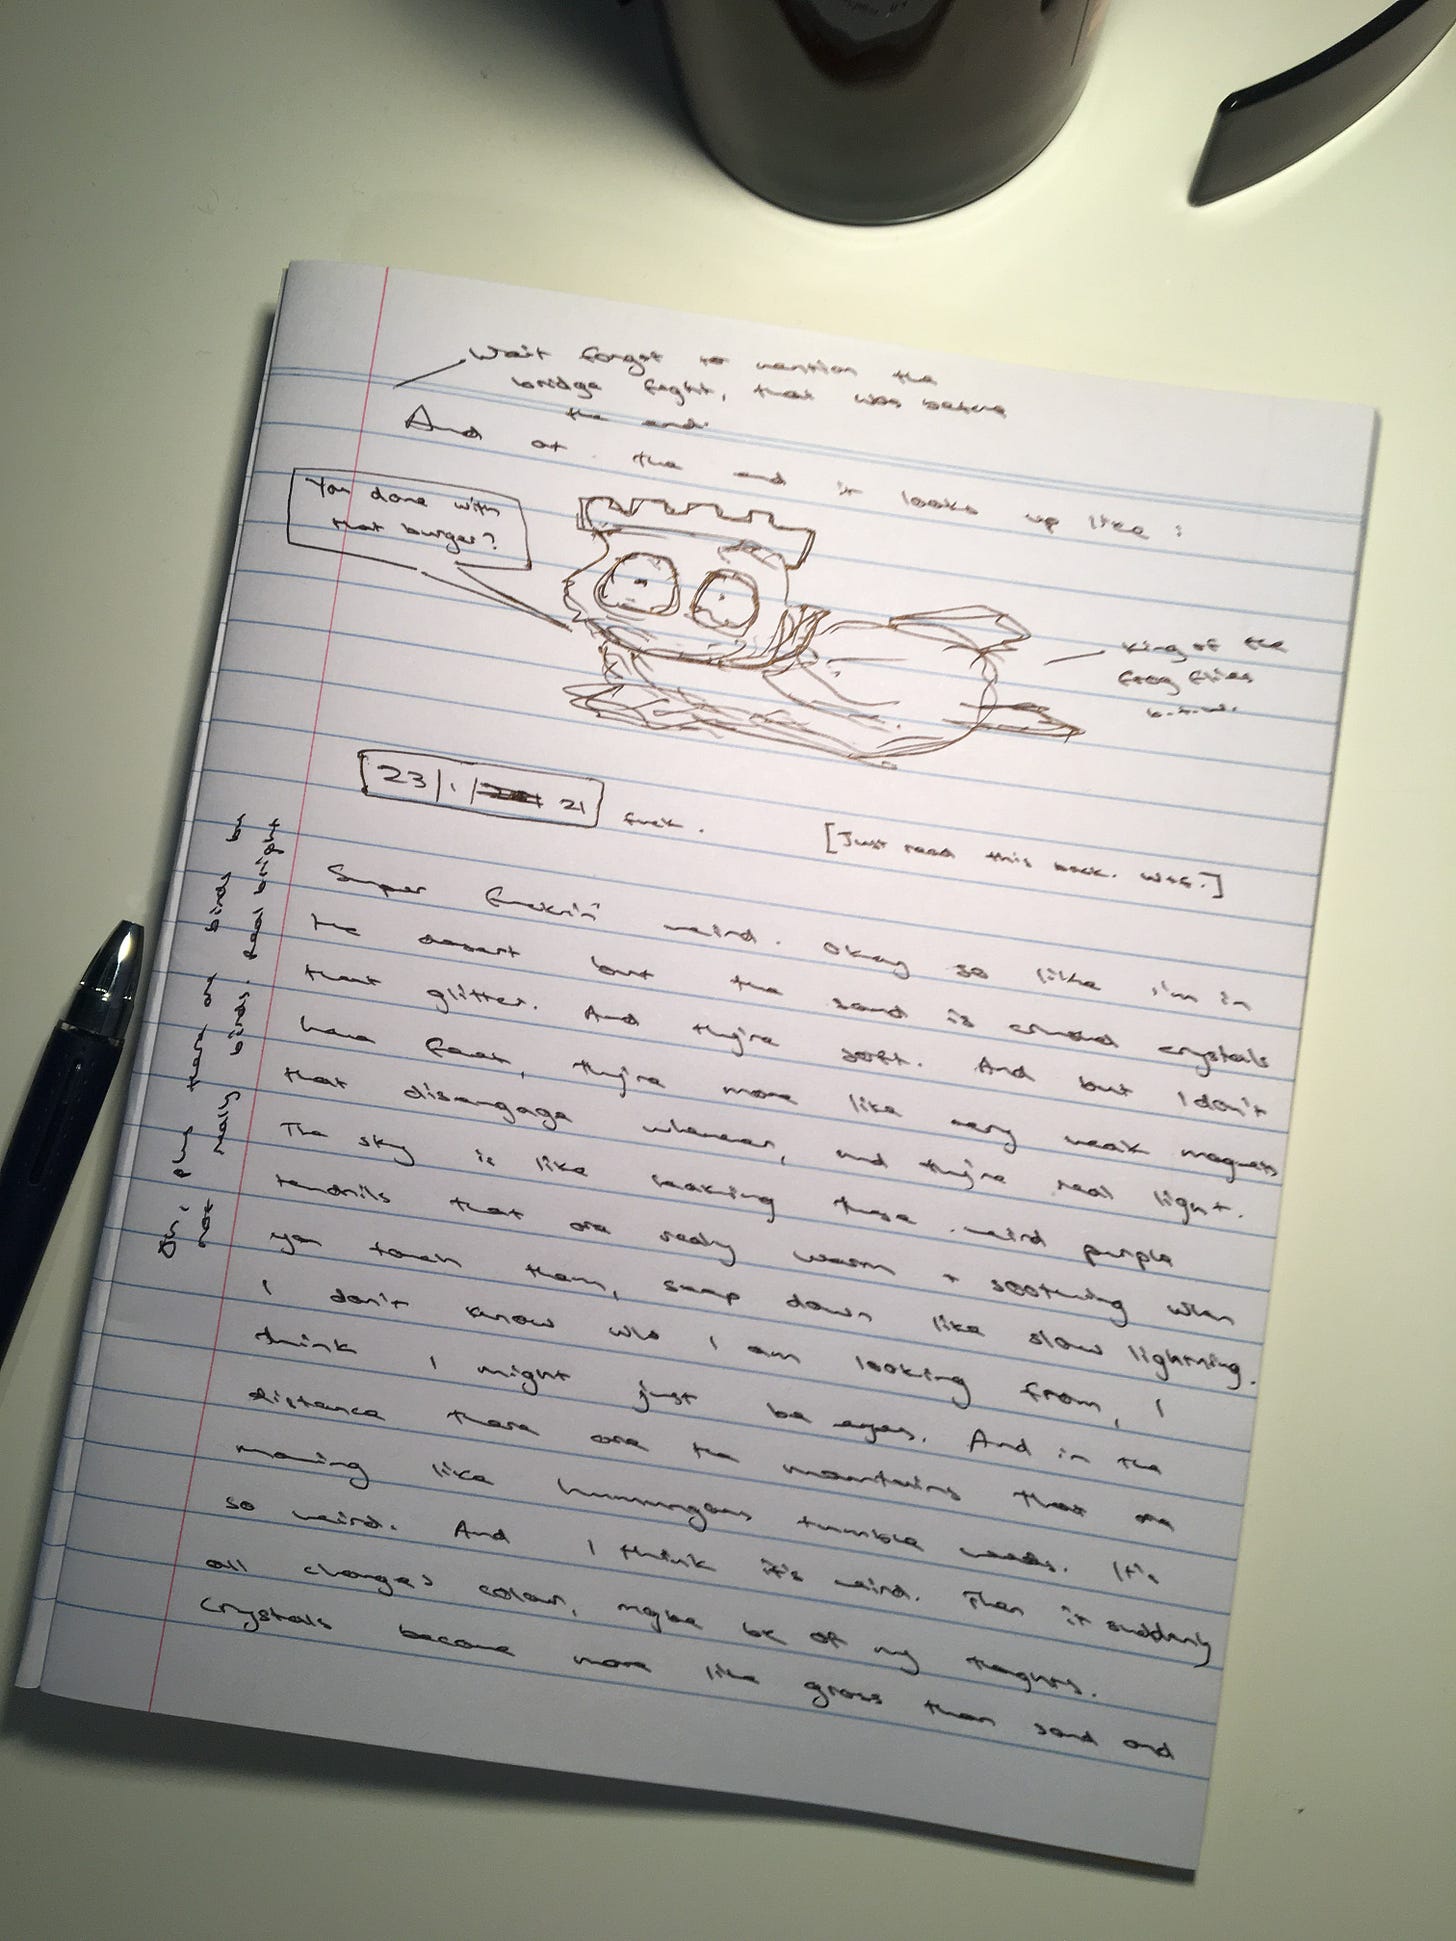 Wait forgot to mention the
bridge fight, that was before
the end.
And at the end it looks up like:
You done with
that burger?
King of the
frog flies
b.t.w.
23/1/ 21 fuck. [Just read this back. Wtf.]
Super fuckin' weird. Okay so like i'm in
the desert but the sand is crushed crystals
that glitter. And they're soft. And but I don't
have feet, they're more like very weak magnets
that disengage whenever, and they're real light.
The sky is like leaking these weird purple
tendrils that are really warm + soothing when
you touch them, seep down like slow lightning.
I don't know who I am looking from, I
think I might just be eyes. And in the
distance there are the mountains that are
moving like humungous tumble weeds. It's
so weird. And I think it's weird. Then it suddenly
all changes colour, maybe bc of my thoughts.
Crystals become more like grass than sand and
Oh, plus there are birds but
not really birds. Real bright